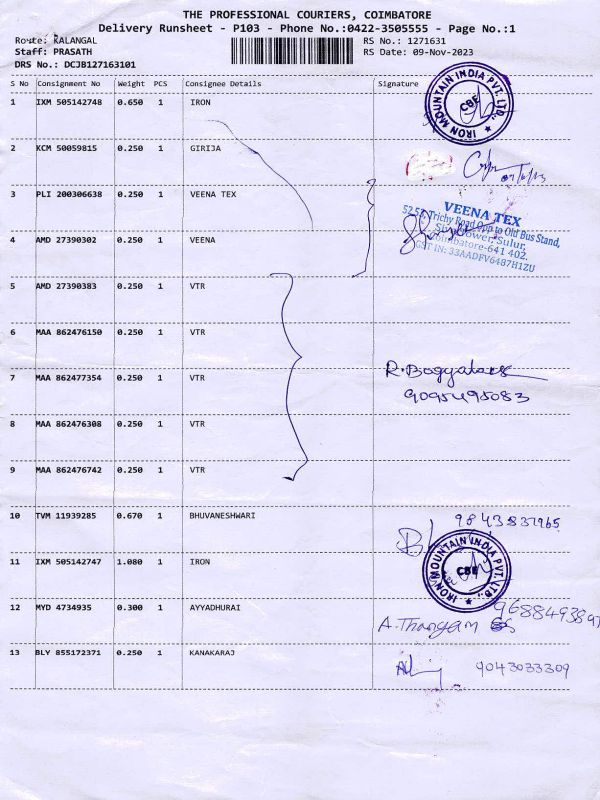 THE PROFESSIONAL COURIERS, COIMBATORE
Delivery Runsheet - P103 - Phone No.:0422-3505555 - Page No.:1
Route: KALANGAL
RS No.: 1271631
Staff: PRASATH
RS Date: 09-Nov-2023
DRS No.: DCJB127163101
S No Consignment No Weight PCS Consignee Details Signature
1 IXM 505142748 0.650 1 IRON
IRON MOUNTAIN INDIA PVT. LTD.,
CBE
2 KCM 50059815 0.250 1 GIRIJA
3 PLI 200306638 0.250 1 VEENA TEX
VEENA TEX
52,53, Trichy Road Opp to Old Bus Stand,
Sulur,
Coimbatore-641 402.
GST IN: 33AADFV6487H1ZU
4 AMD 27390302 0.250 1 VEENA
5 AMD 27390383 0.250 1 VTR
6 MAA 862476150 0.250 1 VTR
7 MAA 862477354 0.250 1 VTR
9095495083
8 MAA 862476308 0.250 1 VTR
9 MAA 862476742 0.250 1 VTR
10 TVM 11939285 0.670 1 BHUVANESHWARI
11 IXM 505142747 1.080 1 IRON
IRON MOUNTAIN INDIA PVT. LTD.,
CBE
12 MYD 4734935 0.300 1 AYYADHURAI
A. Thangam
13 BLY 855172371 0.250 1 KANAKARAJ
9043033309